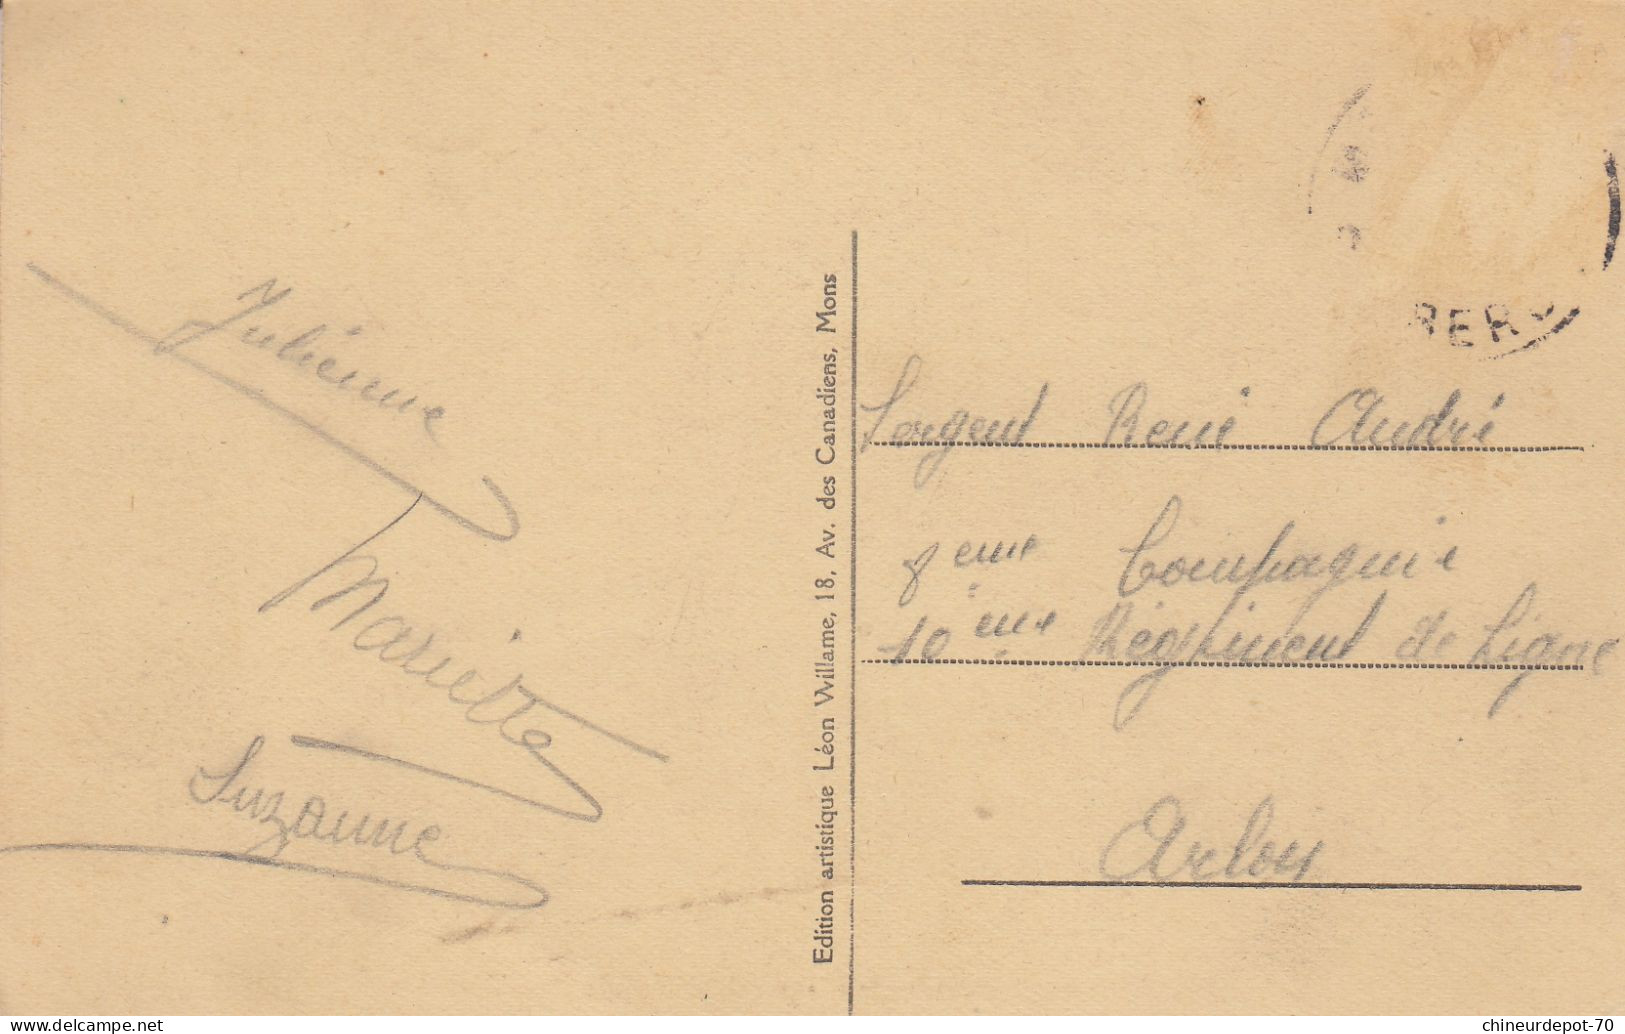 Juliénne
Mariette
Suzanne
Edition artistique Léon Willame, 18, Av. des Canadiens, Mons
Sergent René André
8eme Compagnie
10eme Régiment de Ligne
Arlon
chineurdepot-70